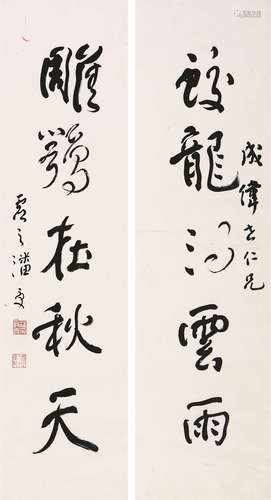 蛟龍得雲雨
成偉仁兄
雕鶚在秋天
虛之潘受